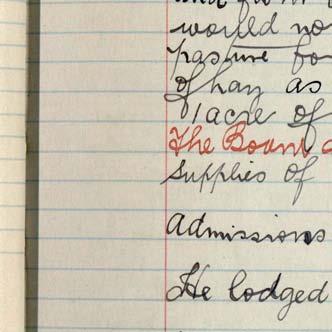 world no
pasture fo
of hay as
1 acre of
The Board
supplies of
admissions
He lodged